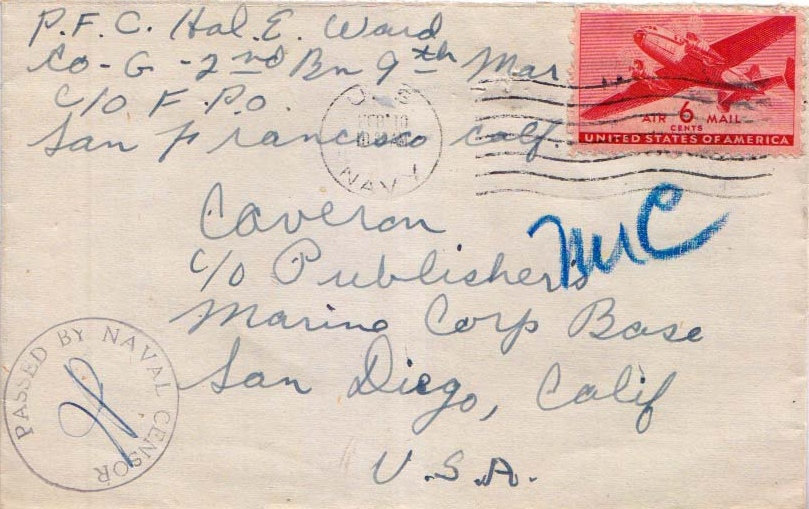 P.F.C. Hal. E. Ward
Co-G-2nd Bn 9th Mar
C/O F.P.O.
San Francisco Calf.
U.S.
NAVY
AIR 6 MAIL
CENTS
UNITED STATES OF AMERICA
Caveron
c/o Publishers
Marine Corp Base
San Diego, Calif
U.S.A.
PASSED BY NAVAL CENSOR